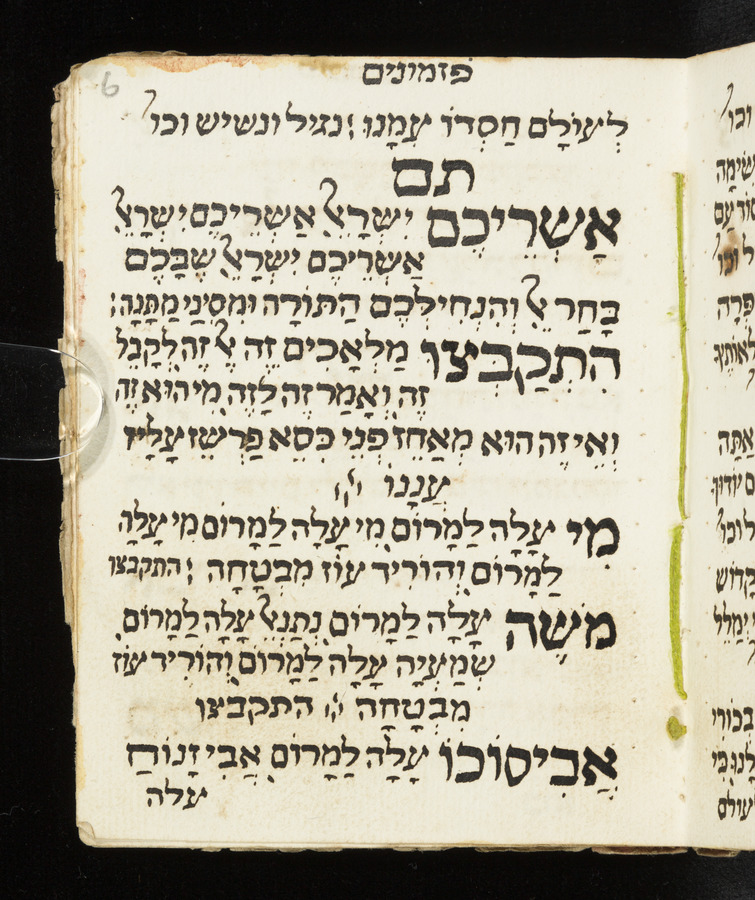 פזמונים
6
לְעוֹלָם חַסְדוֹ עִמָנוּ׃ נגיל ונשיש וכו'
תם
אַשְרֵיכֶם יִשְרָאֵל אַשְרֵיכֶם יִשְרָאֵל
אַשְרֵיכֶם יִשְרָאֵל שֶבָכֶם
בָּחַר אֵל וְהִנְחִילְכֶם הַתּוֹרָה וּמִסִינַי מַתָּנָה׃
הִתְקַבְּצוּ מַלְאָכִים זֶה אֶל זֶה לְקָבֵל
זֶה. וְאָמַר זֶה לָזֶה. מִי הוּא זֶה
וְאֵי זֶה הוּא מְאַחֵז פְנֵי כִסֵא פַרְשֵז עָלָיו
עֲנָנוֹ
מִי עָלָה לַמָרוֹם. מִי עָלָה לַמָרוֹם מִי עָלָה
לַמָרוֹם. וְהוֹרִיד עוֹז מִבְטָחָה׃ התקבצו
מֹשֶה עָלָה לַמָרוֹם. נְתַנְאֵל עָלָה לַמָרוֹם.
שְמַעְיָה עָלָה לַמָרוֹם. וְהוֹרִיד עוֹז
מִבְטָחָה׃ התקבצו
אֲבִי סוֹכוֹ עָלָה לַמָרוֹם. אֲבִי זָנוֹחַ
עלה